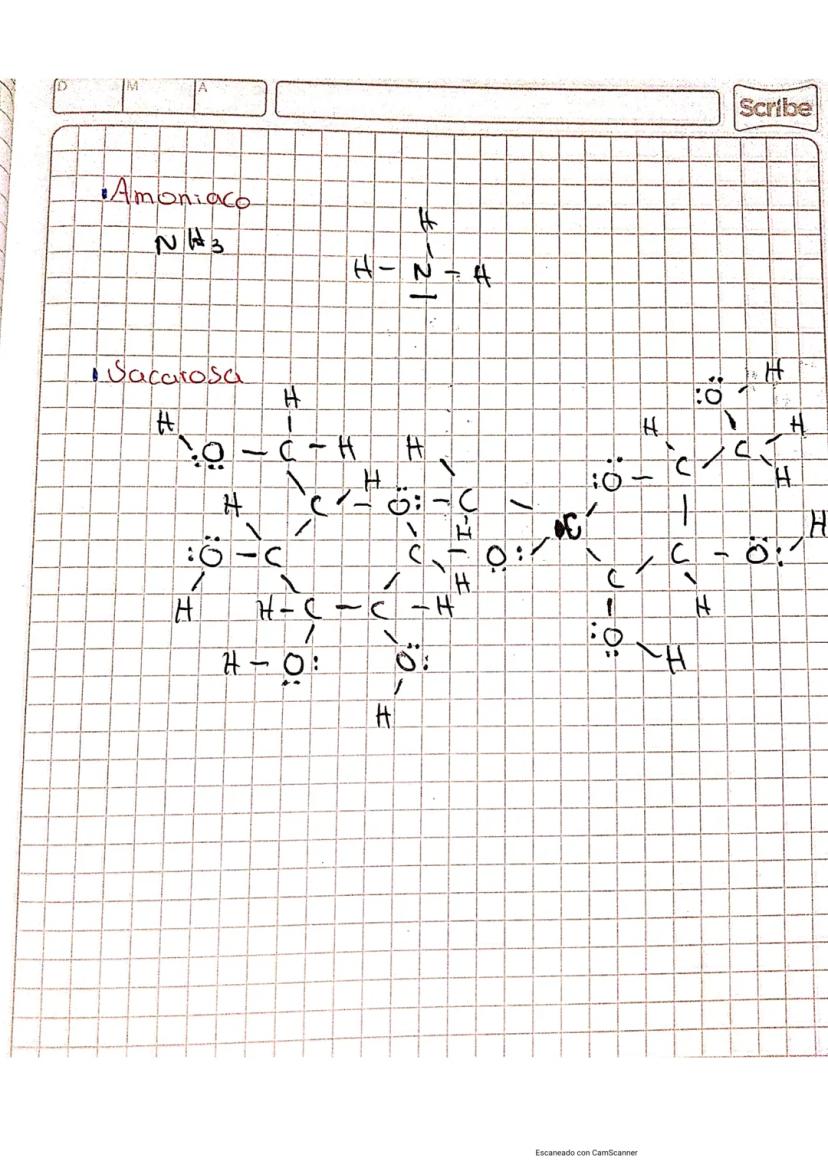 D M A Scribe
Amoniaco
H
NH3
H - N - H
Sacarosa
:Ö H
H
H H H
H O - C - H H C
:Ö - C H
H C - Ö: - C
H H
:Ö - C C - O: C C - Ö:
H C
H H - C - C - H H
:O
H - O: Ö: H
H
Escaneado con CamScanner